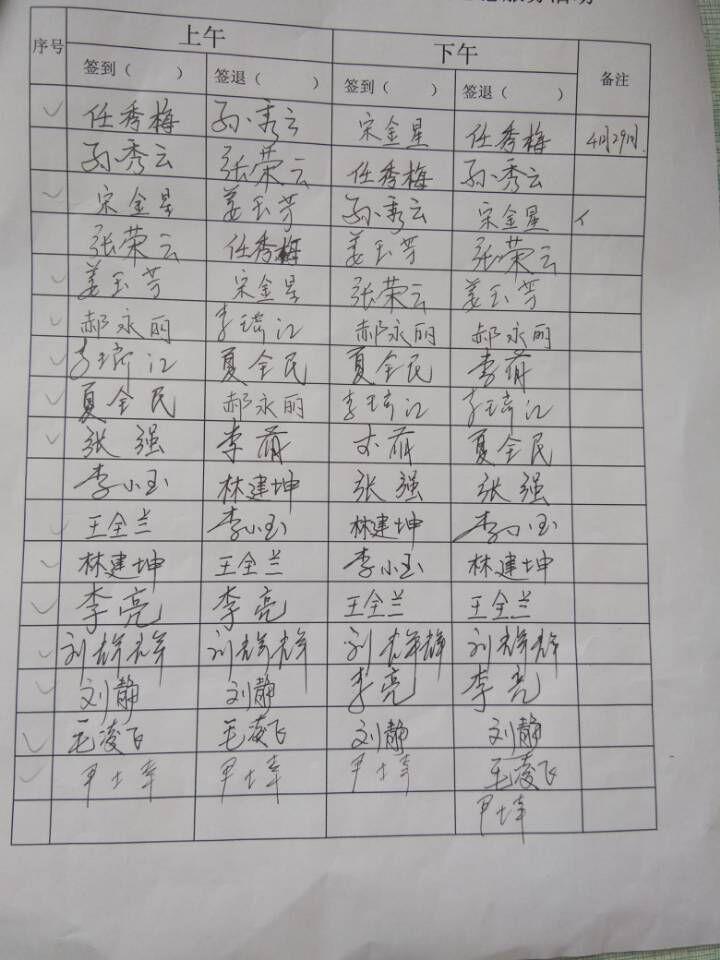 序号 上午 下午 备注
签到（ ） 签退（ ） 签到（ ） 签退（ ）
任秀梅 孙秀云 宋金星 任秀梅 4月29日.
孙秀云 张荣云 任秀梅 孙秀云
宋金星 姜玉芳 孙秀云 宋金星
张荣云 任秀梅 姜玉芳 张荣云
姜玉芳 宋金星 张荣云 姜玉芳
郝永丽 李琦江 郝永丽 郝永丽
李琦江 夏全民 夏全民 李萌
夏全民 郝永丽 李琦江 李琦江
张强 李萌 夏全民
李小玉 林建坤 张强 张强
王全兰 李小玉 林建坤 李小玉
林建坤 王全兰 李小玉 林建坤
李亮 李亮 王全兰 王全兰
刘群群 刘群群 刘群群 刘群群
刘静 刘静 李亮 李亮
毛凌飞 毛凌飞 刘静 刘静
毛凌飞